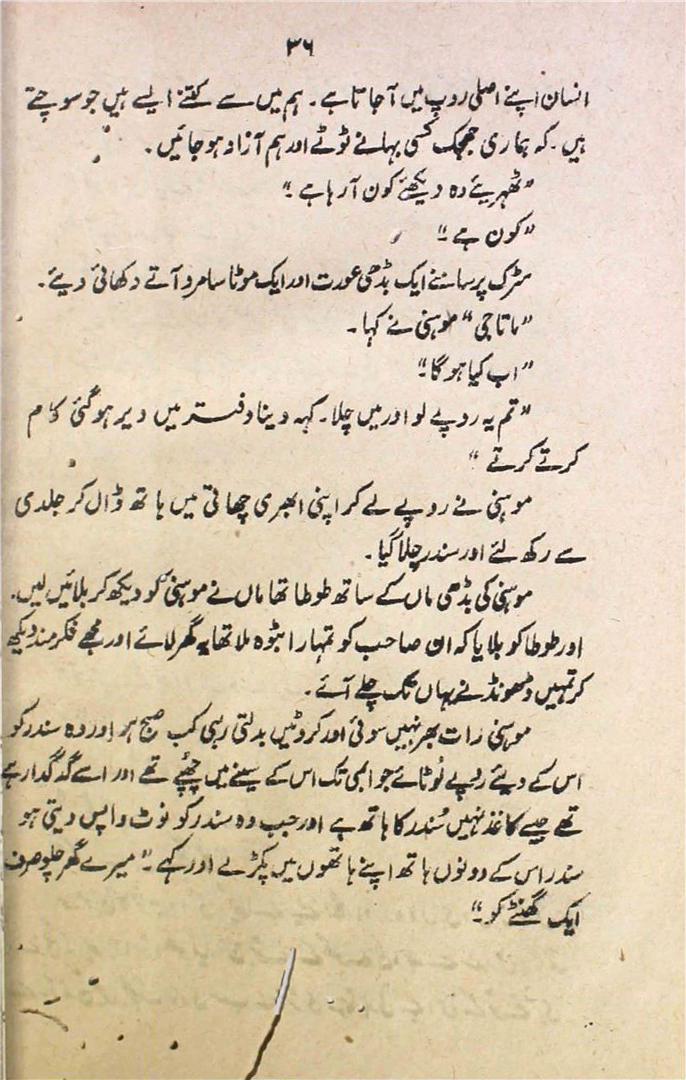 ۳۶
انسان اپنے اصلی روپ میں آجاتا ہے۔ ہم میں سے کتنے ایسے ہیں جو سوچتے
ہیں۔ کہ ہماری جھجک کسی بہانے ٹوٹے اور ہم آزاد ہو جائیں۔
”ٹھہریئے وہ دیکھئے کون آرہا ہے۔“
”کون ہے۔“
سڑک پر سامنے ایک بڈھی عورت اور ایک موٹا سا مرد آتے دکھائی دیئے۔
”ماتا جی“ موہنی نے کہا۔
”اب کیا ہو گا۔“
”تم یہ روپے لو اور میں چلا۔ کہہ دینا دفتر میں دیر ہو گئی کام
کرتے کرتے“
موہنی نے روپے لے کر اپنی ابھری چھاتی میں ہاتھ ڈال کر جلدی
سے رکھ لئے اور سندر چلا گیا۔
موہنی کی بڈھی ماں کے ساتھ طوطا تھا ماں نے موہنی کو دیکھ کر بلائیں لیں۔
اور طوطا کو بلایا کہ ان صاحب کو تمہارا بٹوہ ملا تھا یہ گھر لائے اور مجھے فکر مند دیکھ
کر تمہیں ڈھونڈنے یہاں تک چلے آئے۔
موہنی رات بھر نہیں سوئی اور کروٹیں بدلتی رہی کب صبح ہو اور وہ سندر کو
اس کے دیئے روپے لوٹائے جو ابھی تک اس کے سینے میں چھپے تھے اور اسے گدگدا رہے
تھے جیسے کاغذ نہیں سُندر کا ہاتھ ہے اور جب وہ سندر کو نوٹ واپس دیتی ہو
سندر اس کے دونوں ہاتھ اپنے ہاتھوں میں پکڑ لے اور کہے۔ ”میرے گھر چلو صرف
ایک گھنٹے کو۔“